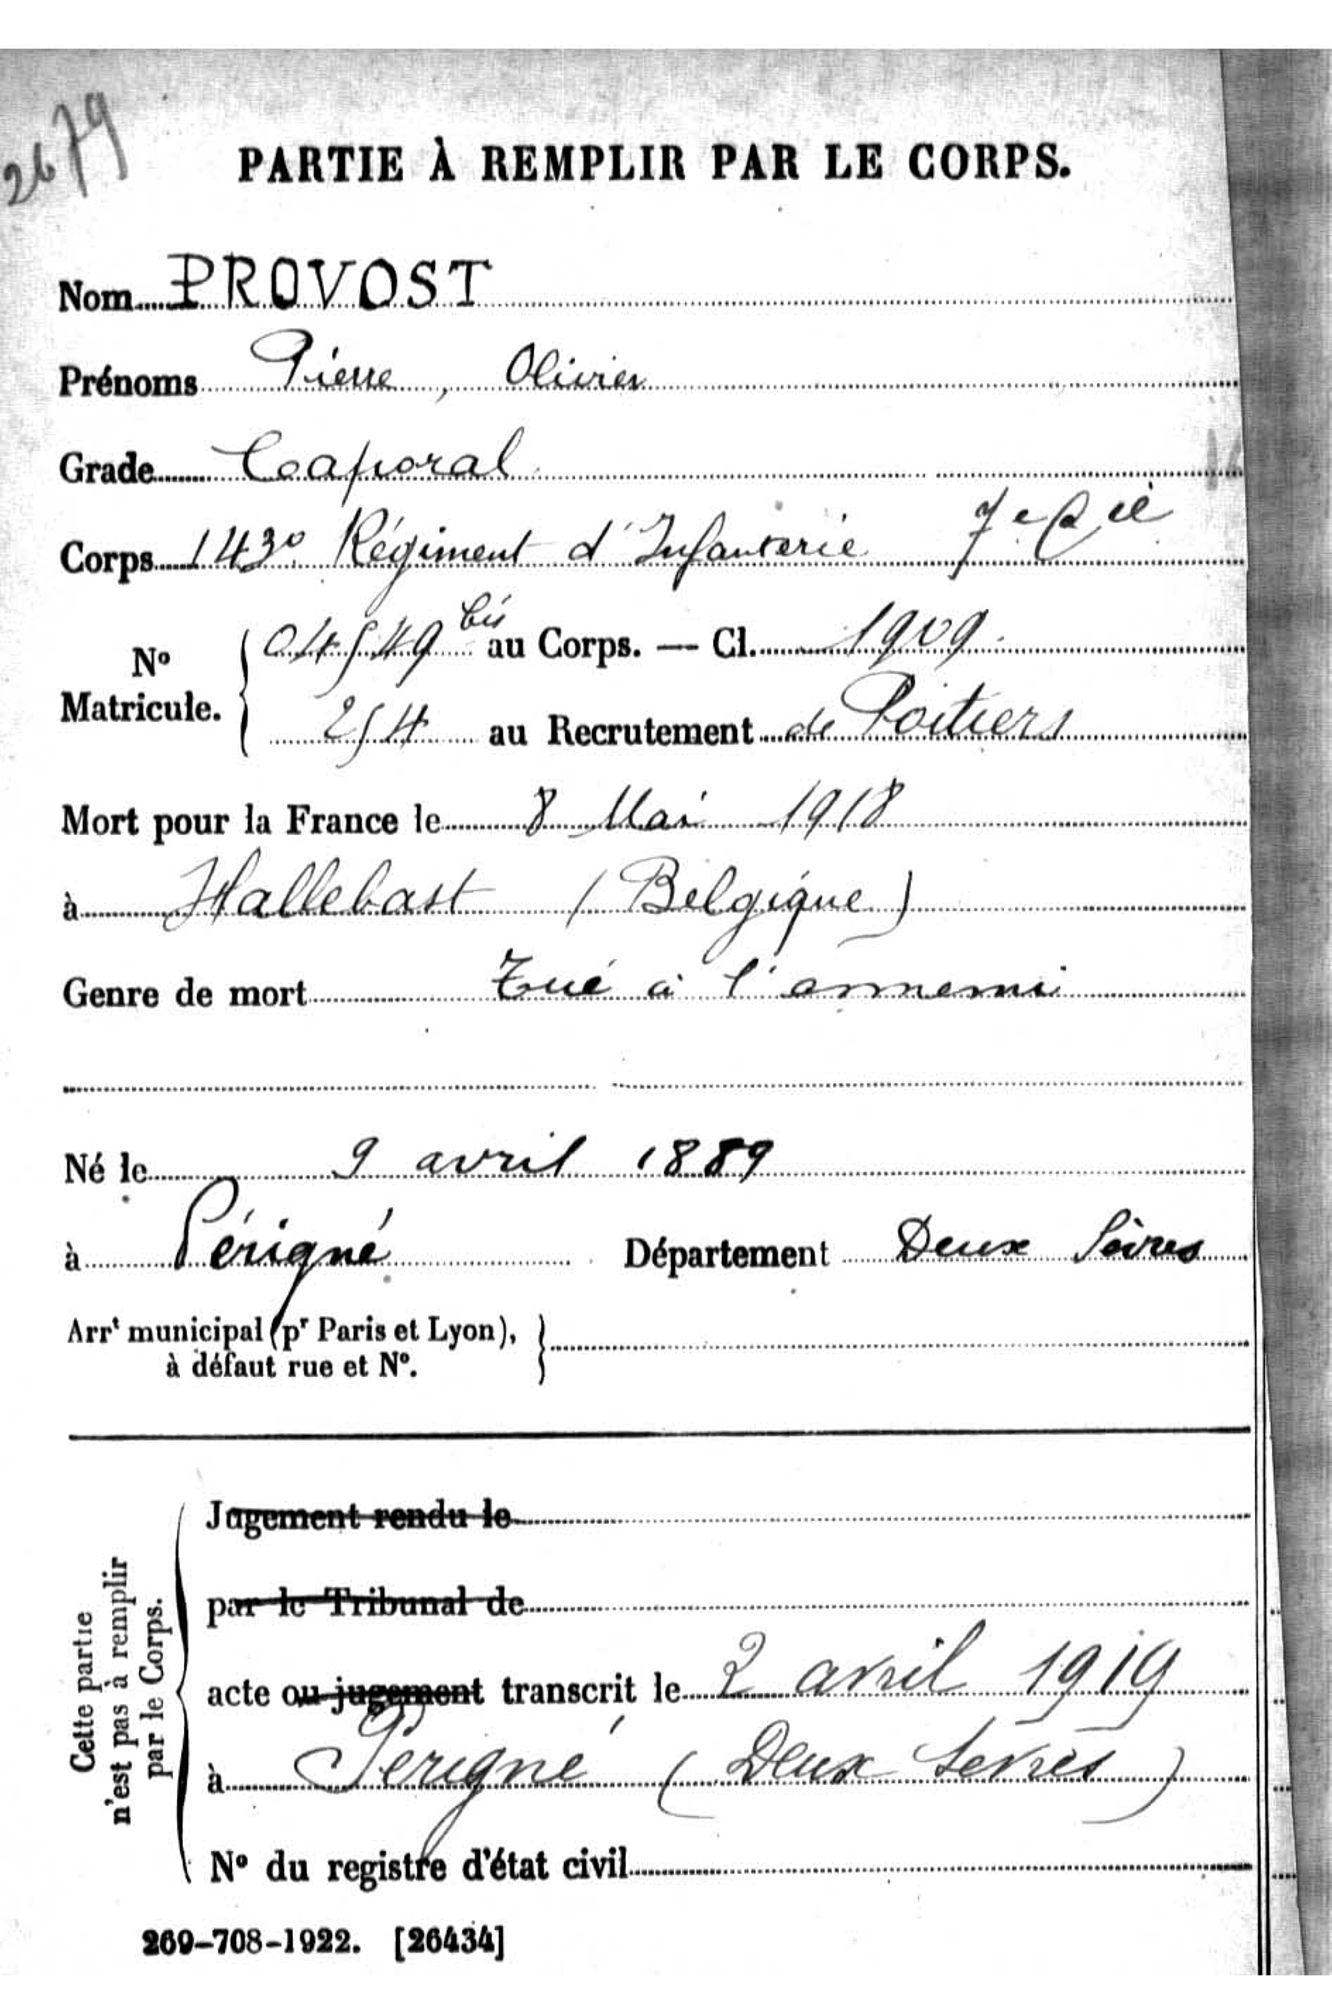 2679
PARTIE À REMPLIR PAR LE CORPS.
Nom PROVOST
Prénoms Pierre, Olivier
Grade Caporal
Corps 143e Régiment d'Infanterie 7e Cie
No Matricule. 04549 bis au Corps. — Cl. 1909.
254 au Recrutement de Poitiers
Mort pour la France le 8 Mai 1918
à Hallebast (Belgique)
Genre de mort Tué à l'ennemi
Né le 9 avril 1889
à Périgné Département Deux Sèvres
Arrt municipal (pr Paris et Lyon),
à défaut rue et No.
Cette partie
n'est pas à remplir
par le Corps.
Jugement rendu le
par le Tribunal de
acte ou jugement transcrit le 2 avril 1919
à Périgné (Deux Sèvres)
No du registre d'état civil
269-708-1922. [26434]